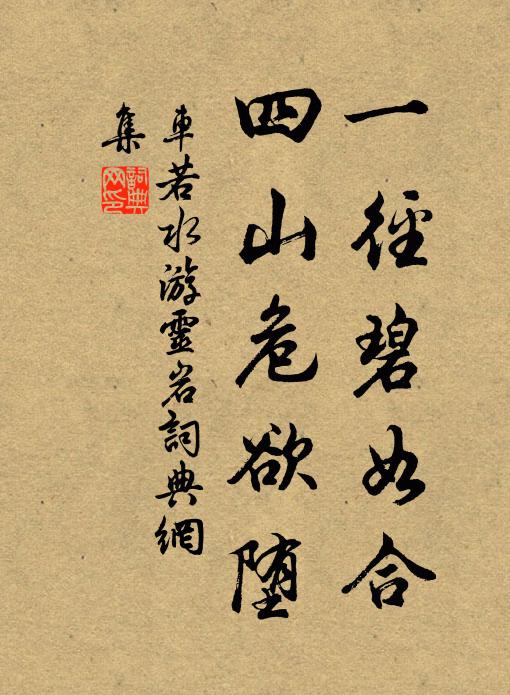 一徑碧如合
四山危欲堕
車若水游靈岩詞典網
集
詞典
网印